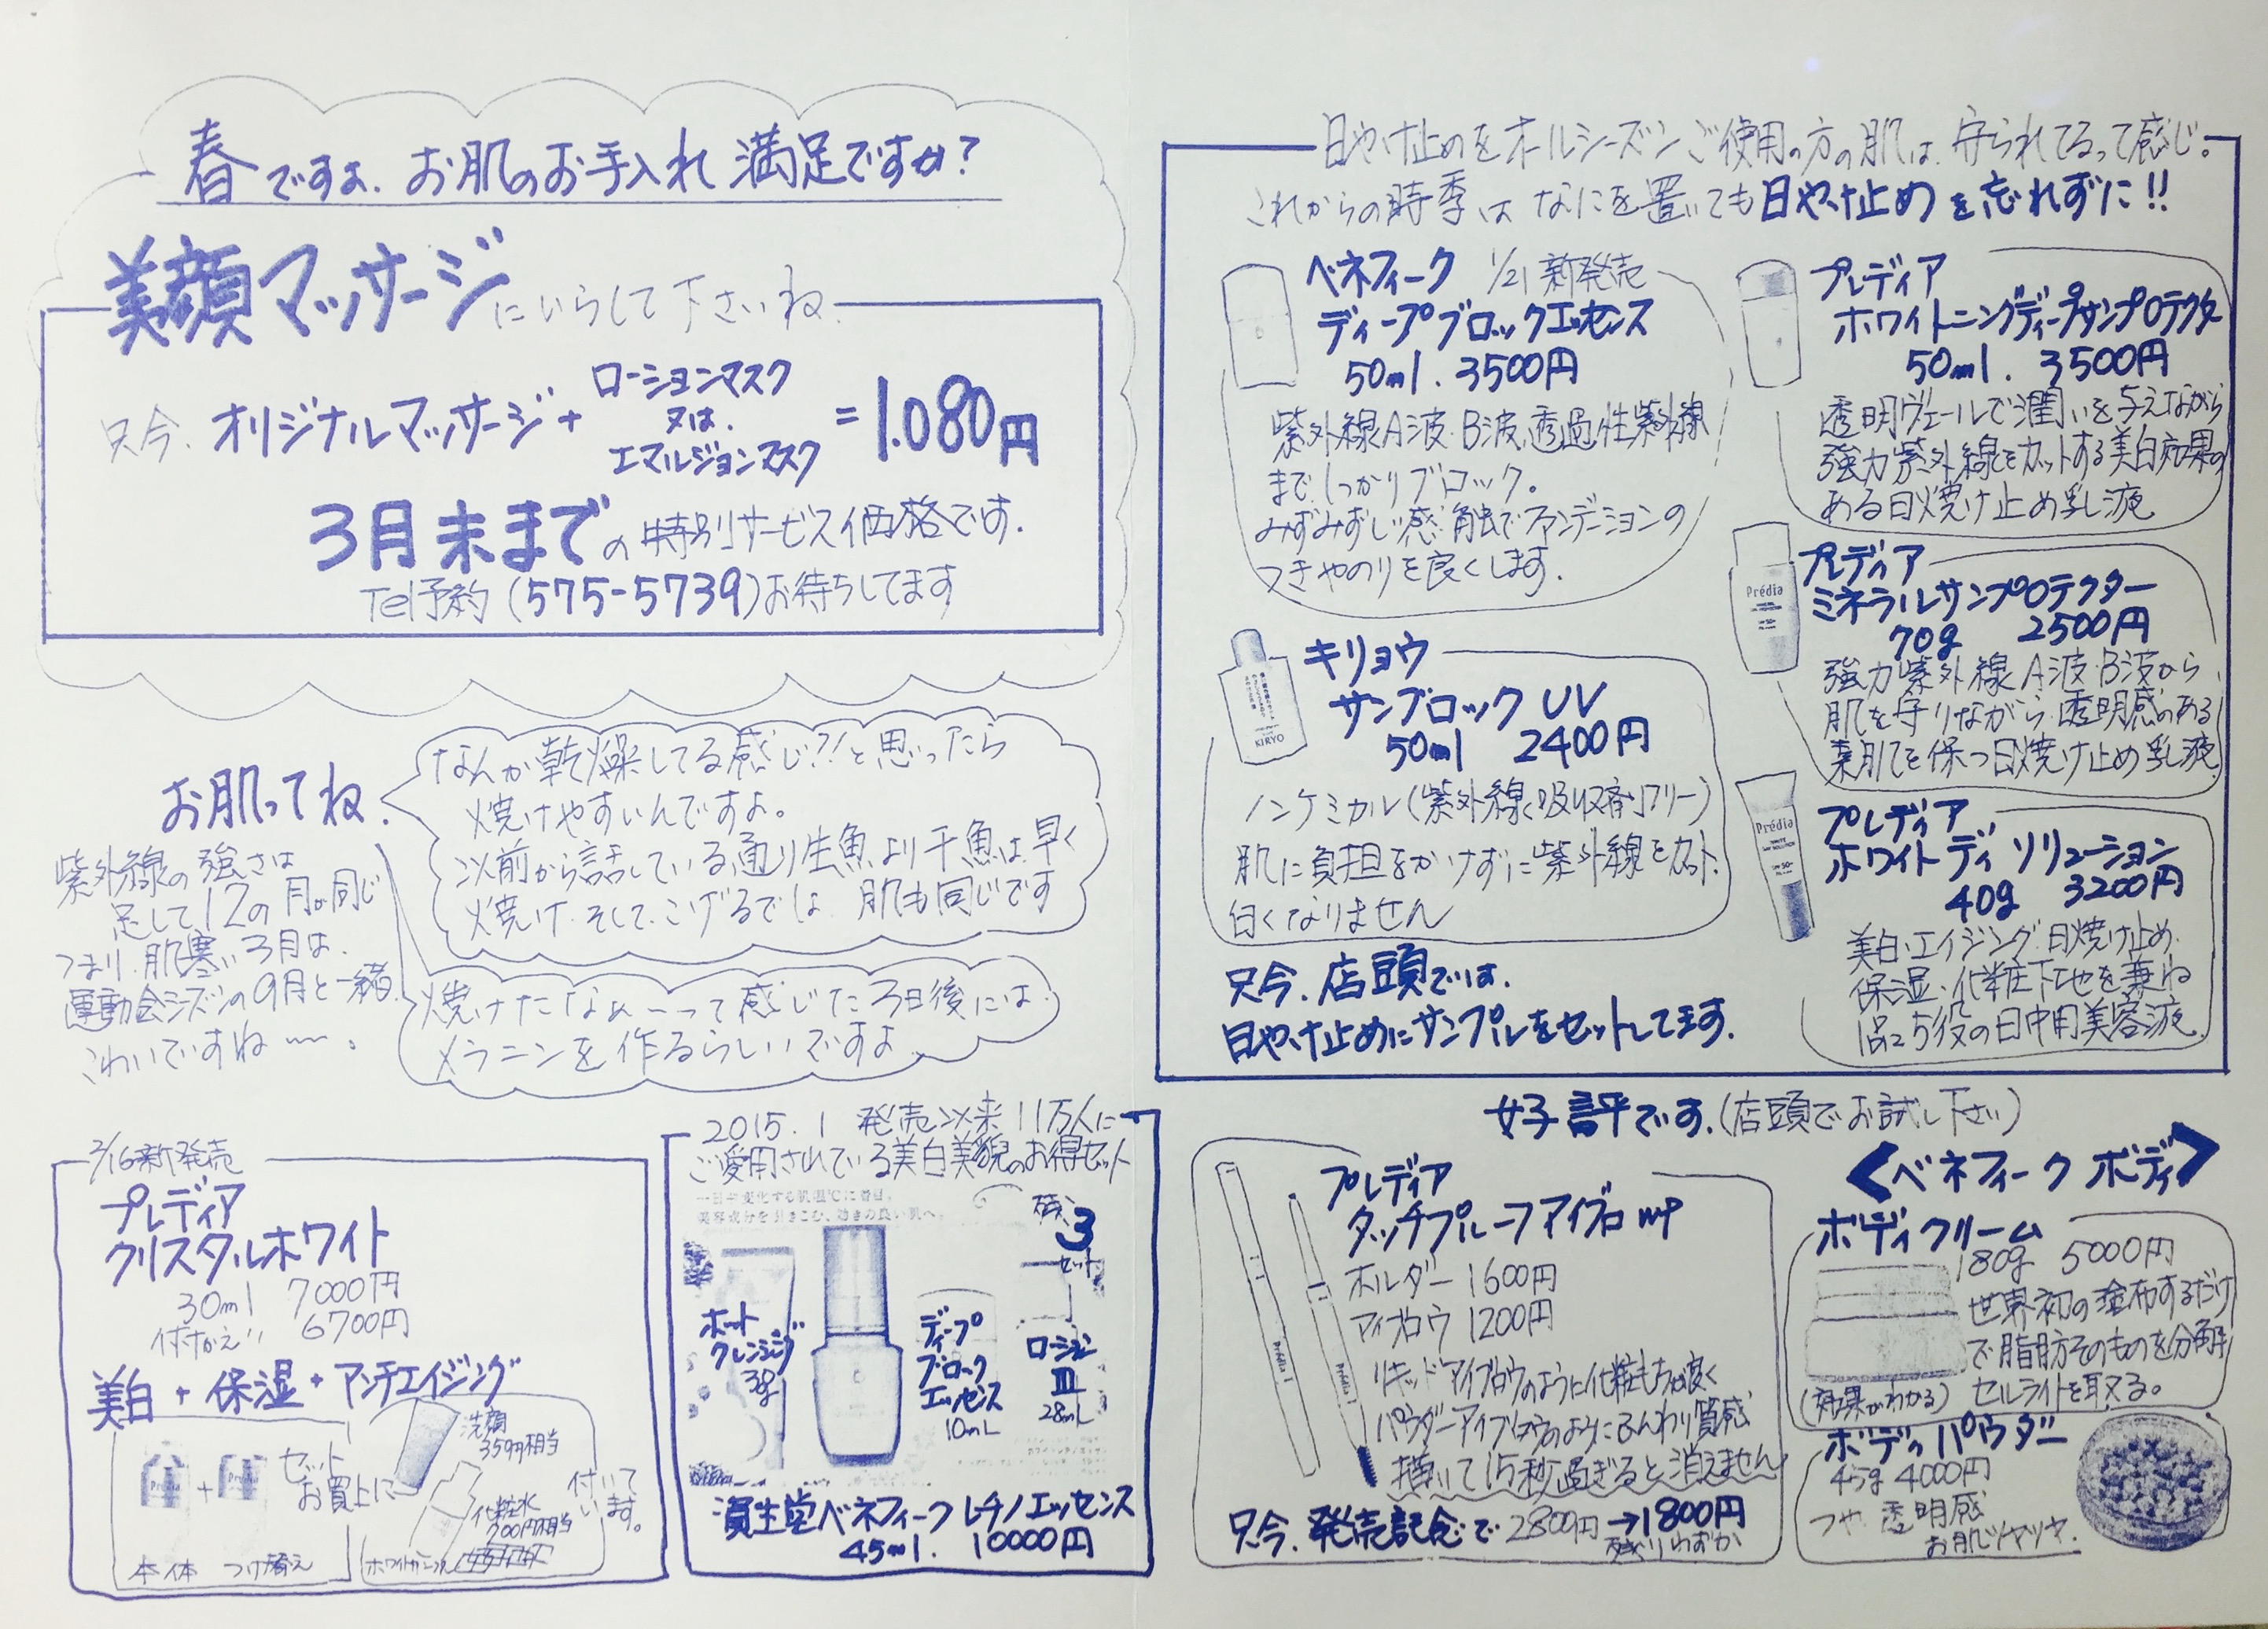 春ですよ.お肌のお手入れ満足ですか?
美顔マッサージにいらして下さいね
只今.オリジナルマッサージ+
ローションマスク
又は.
エマルジョンマスク
=1.080円
3月末までの特別サービス価格です.
Tel予約(575-5739)お待ちしてます
お肌ってね.
なんか乾燥してる感じ?!と思ったら
焼けやすいんですよ。
以前から話している通り生魚より干魚は早く
焼け.そして.こげるでは 肌も同じです
焼けたなぁ〜って感じた3日後には
メラニンを作るらしいですよ
紫外線の強さは
足して12の月が同じ
つまり.肌寒い3月は.
運動会シーズンの9月と一緒.
こわいですね〜。
2/16新発売
プレディア
クリスタルホワイト
30ml 7000円
付けかえ!! 6700円
美白+保湿+アンチエイジング
セット
お買上に
洗顔
359円相当
化粧水
700円相当
付いて
います。
本体 つけ替え
2015.1 発売以来 11万人に
ご愛用されている美白美貌のお得セット
一日中変化する肌温℃に着目。
美容成分を引きこむ、効きの良い肌へ。
残り3セット
ホット
クレンジング
3g
ディープ
ブロック
エッセンス
10mL
ローション
III
28mL
資生堂ベネフィーク レチノエッセンス
45ml. 10000円
日やけ止めをオールシーズンご使用の方の肌は.守られてるって感じ。
これからの時季は なにを置いても日やけ止めを忘れずに!!
ベネフィーク 1/21新発売
ディープブロックエッセンス
50ml.3500円
紫外線A波・B波、透過性紫外線
まで しっかりブロック。
みずみずしい感触でファンデーションの
つきやのりを良くします.
キリョウ
サンブロック UV
50ml 2400円
KIRYO
ノンケミカル(紫外線吸収剤フリー)
肌に負担をかけずに紫外線をカット.
白くなりません
只今.店頭では.
日やけ止めにサンプルをセットしてます.
プレディア
ホワイトニングディープサンプロテクター
50ml.3500円
透明ヴェールで潤いを与えながら
強力紫外線をカットする美白効果の
ある日焼け止め乳液
プレディア
ミネラルサンプロテクター
70g 2500円
Prédia
強力紫外線A波・B波から
肌を守りながら.透明感のある
素肌を保つ日焼け止め乳液
プレディア
ホワイトディ ソリューション
40g 3200円
Prédia
美白・エイジング・日焼け止め.
保湿・化粧下地を兼ね
1品5役の日中用美容液
好評です.(店頭でお試し下さい)
プレディア
タッチプルーフ アイブロウ
ホルダー 1600円
アイブロウ 1200円
リキッドアイブロウのように化粧もちが良く
パウダーアイブロウのようにふんわり質感
描いて15秒過ぎると消えません
只今.発売記念で2800円→1800円
残りわずか
<ベネフィーク ボディ>
ボディクリーム
180g 5000円
世界初の塗布するだけ
で脂肪そのものを分解
(効果がわかる) セルライトを取る。
ボディパウダー
45g 4000円
つや 透明感
お肌ツヤツヤ.